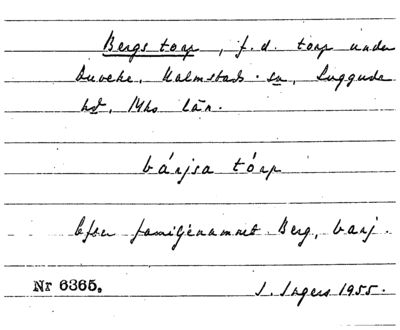 Bergs torp, f.d. torp under
Duveke, Halmstads sn, Luggude
hd, Mhs län.
bárjsa tórp
Efter familjenamnet Berg, barj.
Nr 6365.
I. Ingers 1955.